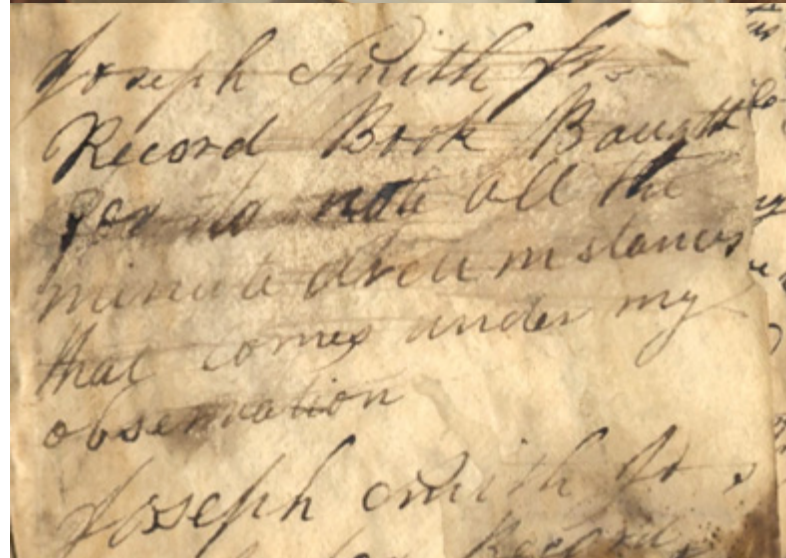 Joseph Smith Jr.
Record Book Baught
for to note all the
minute circumstances
that comes under my
observation
Joseph Smith Jr
Book for Record